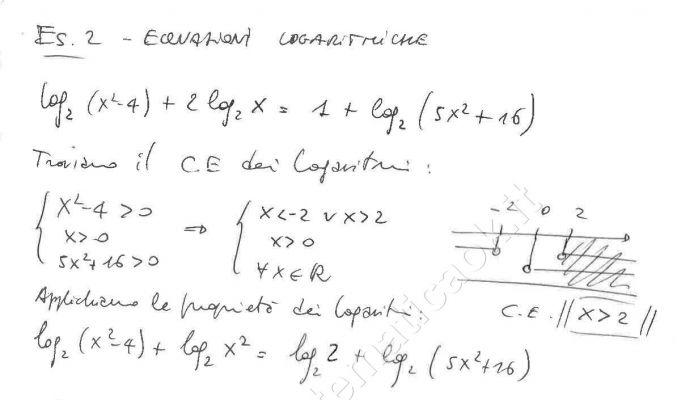 ES. 2 - EQUAZIONI LOGARITMICHE
log₂ (x²-4) + 2 log₂ x = 1 + log₂ (5x²+16)
Troviamo il C.E dei logaritmi:
{ x²-4 > 0 ⇒ { x<-2 ∨ x>2
x>0 x>0
5x²+16>0 ∀x∈ℝ
-2 0 2
Applichiamo le proprietà dei logaritmi:
C.E. // x>2 //
log₂ (x²-4) + log₂ x² = log₂ 2 + log₂ (5x²+16)